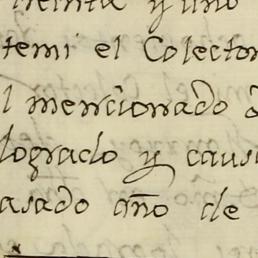 treinta y uno
temi el Colector
l mencionado
logrado y caus
asado año de